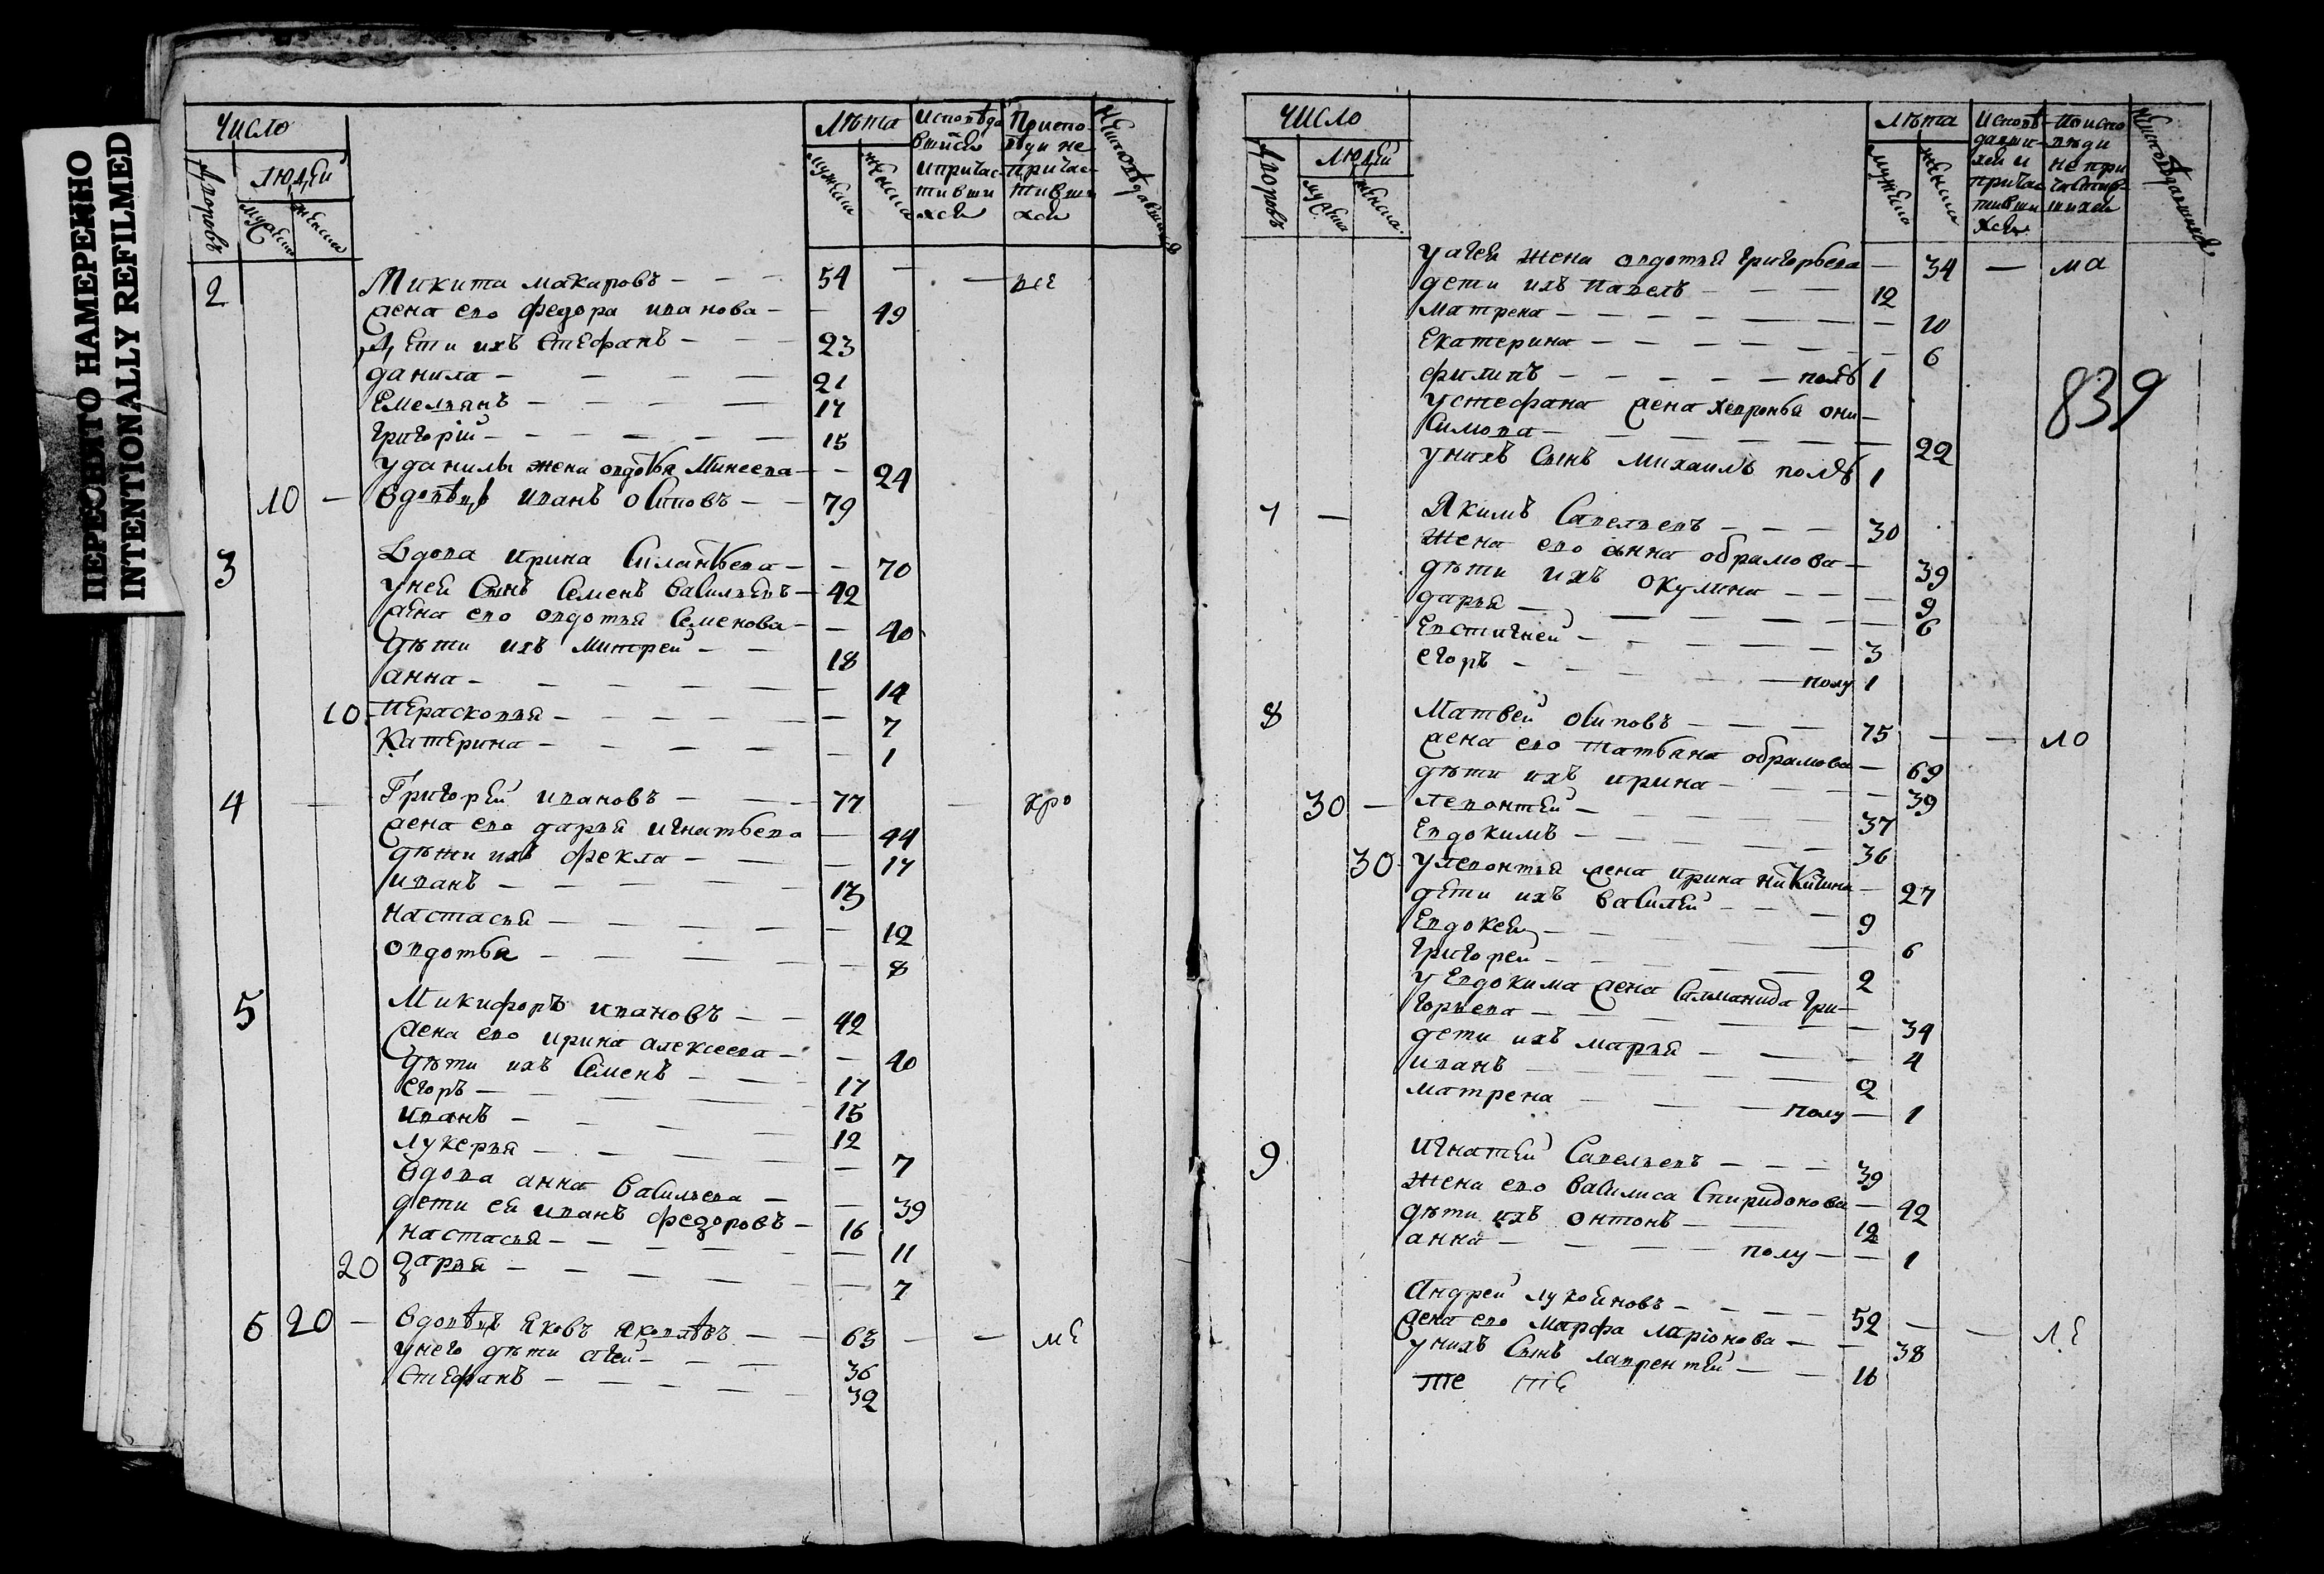 ПЕРЕСНЯТО НАМЕРЕННО
INTENTIONALLY REFILMED
Число
Дворовъ
Людей
мужеска
женска
Лѣта
мужеска
женска
Исповѣдавшися и причастившихся
По исповѣди не причастившихся
Неисповѣдавшихся
2 Микита макаровъ 54
жена ево федора иванова 49
Дети ихъ Стефанъ 23
данила 21
Емельянъ 17
Григорій 15
У данилы жена овдотья Минеева 24
10 Вдовецъ иванъ осиповъ 79
3 Вдова ирина Силантьева 70
У ней Сынъ Семенъ Васильевъ 42
жена ево овдотья Семенова 40
Дѣти ихъ Митрей 18
анна 14
10 Перасковья 7
Катерина 1
4 Григорей ивановъ 77
жена ево дарья игнатьева 44
дѣти ихъ фекла 17
иванъ 13
настасья 12
овдотья 8
5 Микифоръ ивановъ 42
жена ево ирина алексеева 40
дѣти ихъ Семенъ 17
егоръ 15
иванъ 12
лукерья 7
Вдова анна Васильева 39
дети ея иванъ федоровъ 16
настасья 11
20 дарья 7
6 20 Вдовецъ яковъ яковлевъ 63 ме
у него дѣти агей 36
Стефанъ 32
Число
Дворовъ
Людей
мужеска
женска
Лѣта
мужеска
женска
Исповѣдавшихся и причастившихся
По исповѣди не причастившихся
Неисповѣдавшихся
У агея жена овдотья Григорьева 34 ма
дети ихъ павелъ 12
матрена 10
екатерина 6
филипъ полъ 1
839
У стефана жена хевронья они-
симова 22
у нихъ Сынъ михаилъ полъ 1
7 Якимъ Савельевъ 30
жена ево анна обрамова 39
дѣти ихъ окулина 9
дарья 6
Евстигней 3
егоръ полу 1
8 Матвей осиповъ 75 ло
жена ево татьяна обрамова 69
дѣти ихъ ирина 39
30 левонтей 37
Евдокимъ 36
30 у левонтья жена ирина никитина 27
дети ихъ василей 9
Евдокея 6
Григорей 2
у Евдокима жена Саламанида Гри-
горьева 34
дети ихъ марья 4
иванъ 2
матрена полу 1
9 Игнатей Савельевъ 39
жена ево Василиса Спиридонова 42
дѣти ихъ онтонъ 12
анна полу 1
Андрей лукояновъ 52 ле
жена ево марфа ларіонова 38
у нихъ Сынъ лаврентей 16